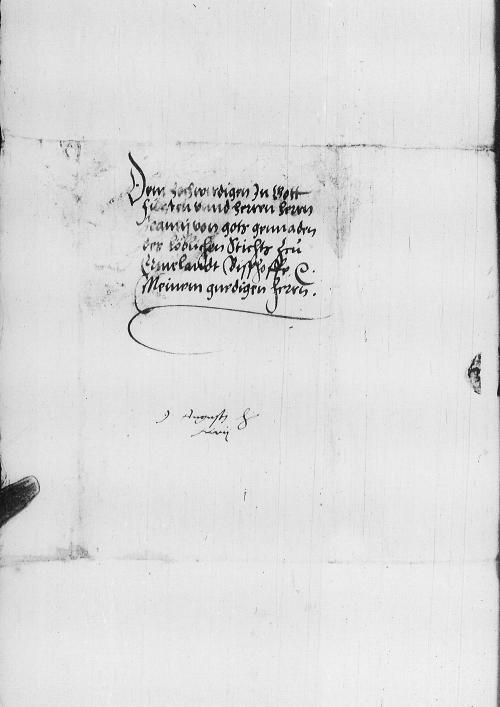 Dem hochwirdigen In Gott
fürsten vnnd herren herrn
von gots gennaden
des loblichen Stiffts zcu
Ermelandt Bisschoffe &c.
Meinem gnedigen herrn.
9 Augusti